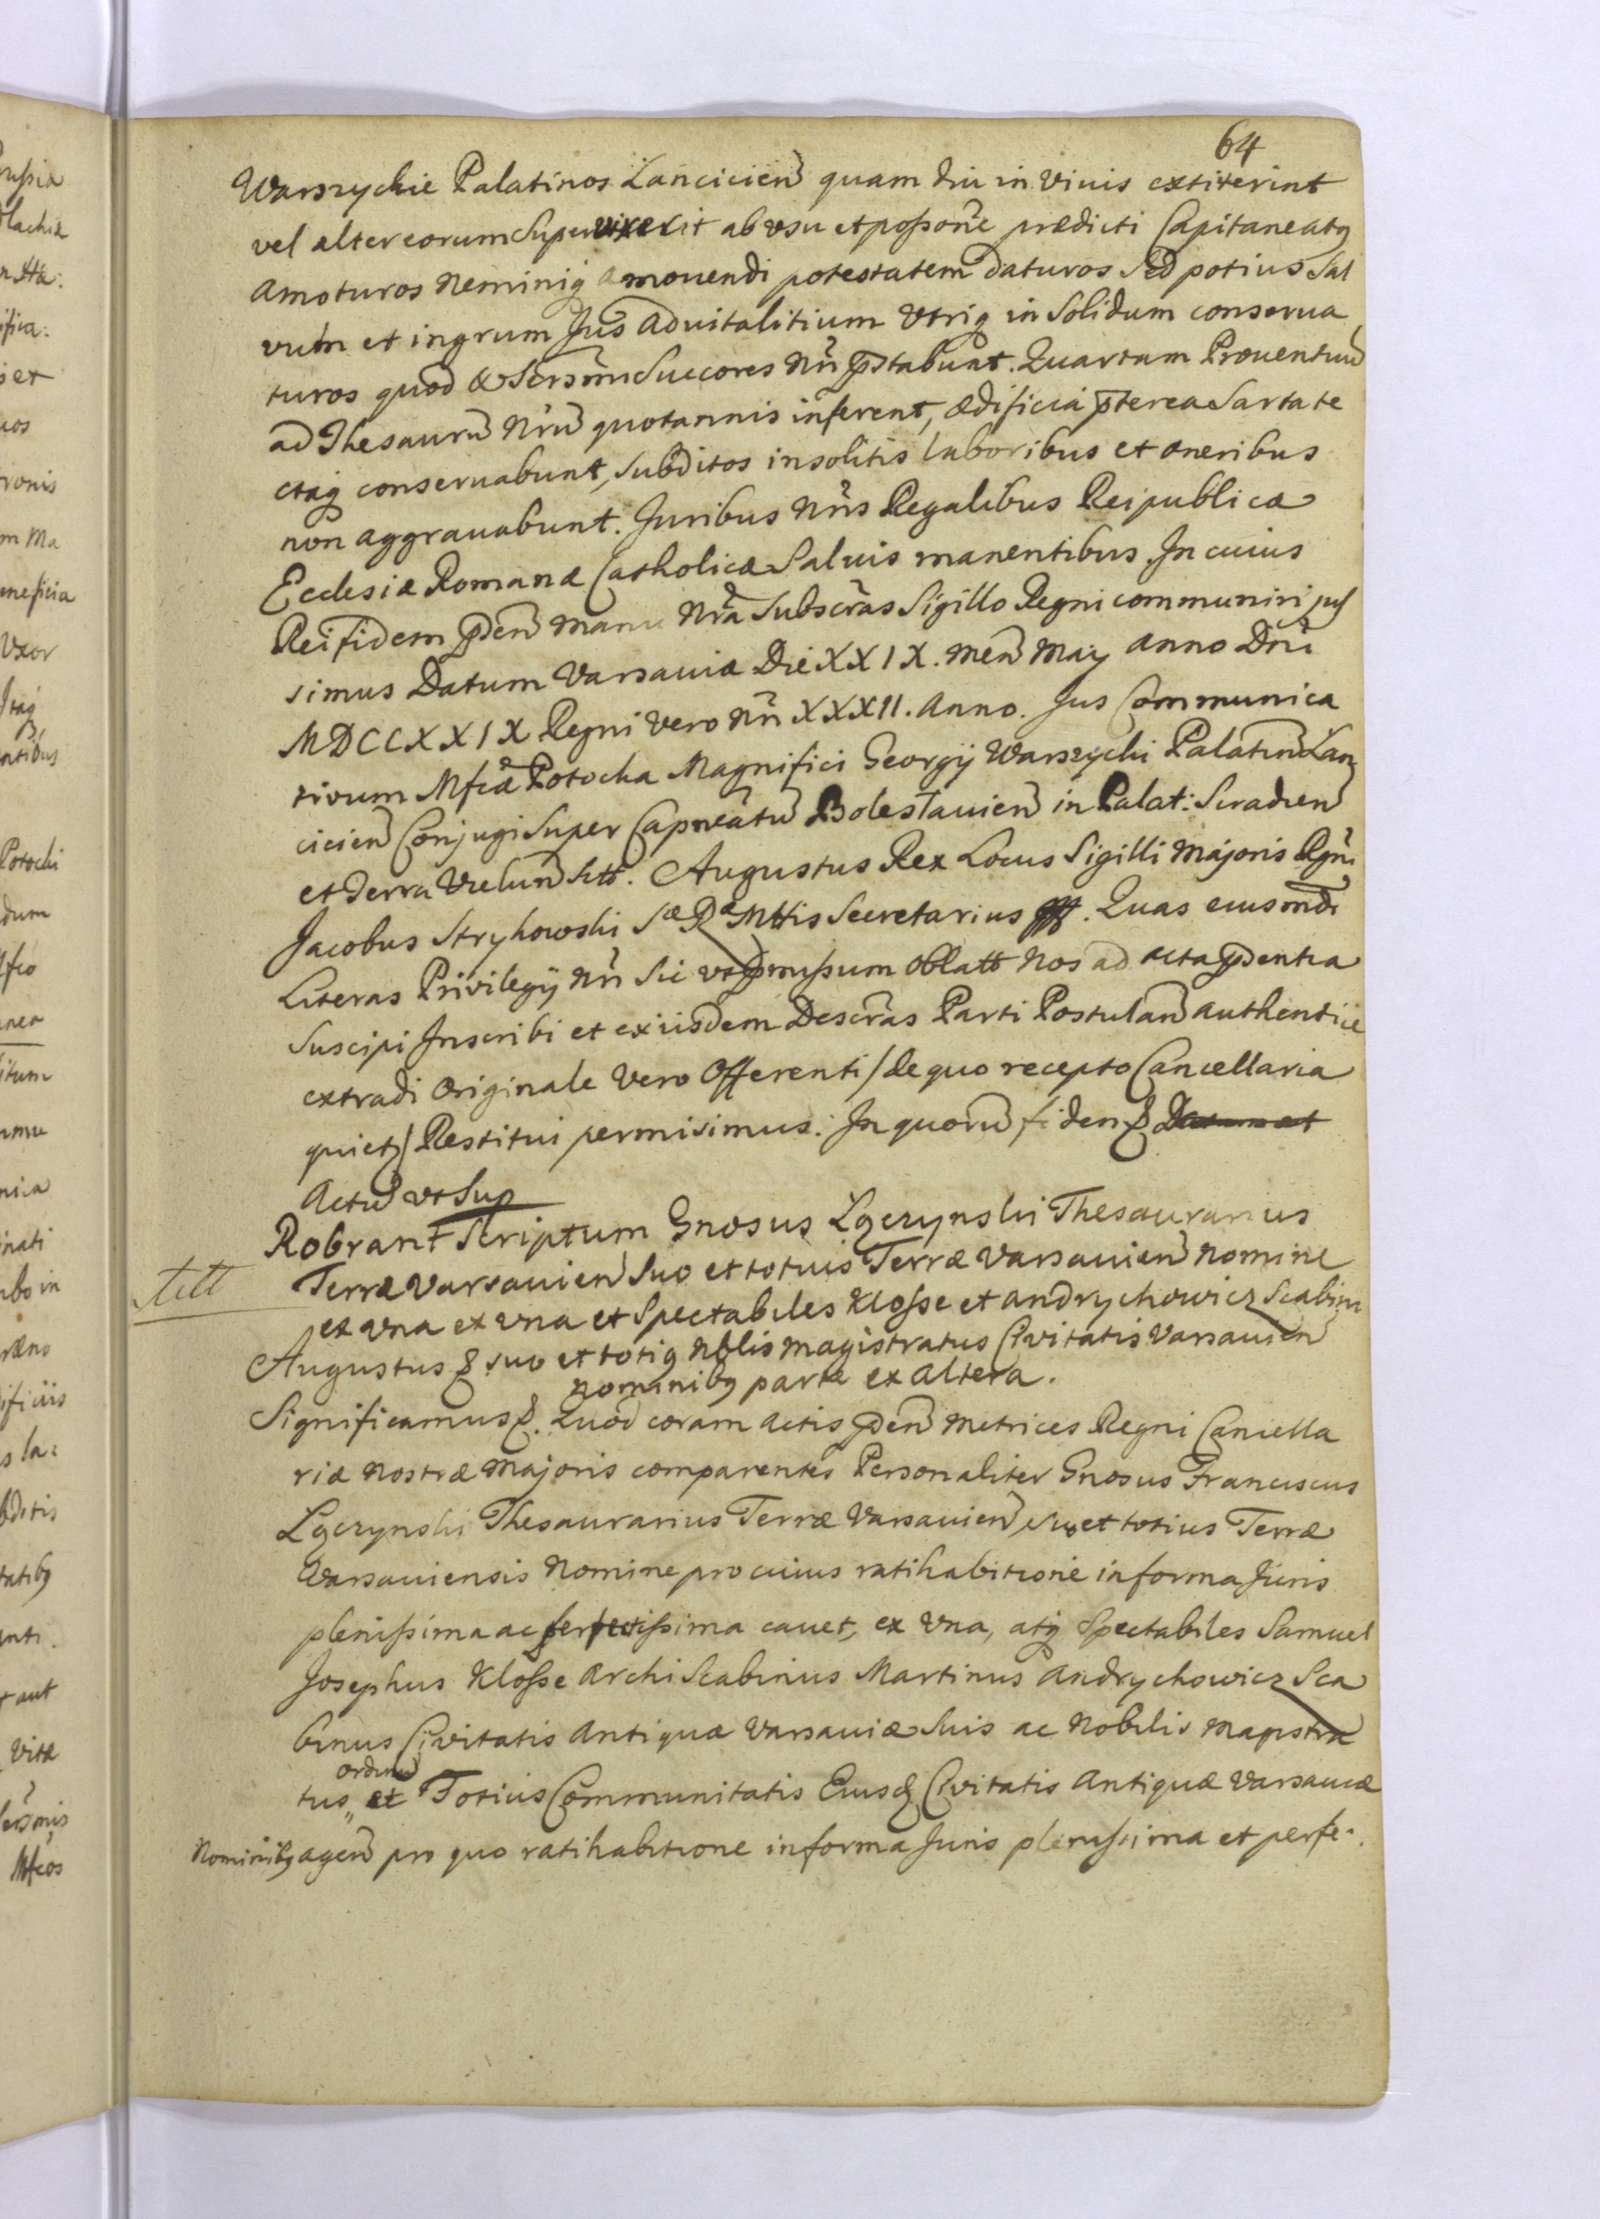 64
Warszyckie Palatinos Lancicień quam diu in vivis extiterint
vel alter eorum Supervixerit ab vsu et possone prædicti Capitaneatq
amoturos neminiq amovendi potestatem daturos Sed potius Sal
vum et ingrum Jus advitalitium vtriq in Solidum conserva
turos quod & Serenmi Succores nri pstabunt. Quartam Proventuu
ad Thesauru nrum quotannis inferent, ædificia pterea Sarta te
ctaq conservabunt, Subditos insolitis laboribus et oneribus
non aggravabunt. Juribus nris Regalibus Reipublicæ
Ecclesiæ Romanæ Catholicæ Salvis manentibus. In cuius
Rei fidem pden manu nra Subscras Sigillo Regni communiri jus
simus Datum Varsaviæ Die XXIX. men May anno Dni
MDCCXXIX Regni vero nri XXXII. anno. Jus Communica
tivum Mfcæ Potocka Magnifici Georgÿ Warszycki Palatin Lan
cicień Conjugi Super Capneatu Bolestavien in Palat: Siradien
et Terra Vielun Sitt. Augustus Rex Locus Sigilli Majoris Rgni
Jacobus Strykowski S R Mttis Secretarius. Quas eiusmdi
Literas Privilegÿ nri Sic vt pmissum oblatt nos ad acta pdentia
Suscipi Inscribi et ex iisdem Descras Parti Postulan authentice
extradi originale vero Offerenti / de quo recepto Cancellaria
quiet / Restitui permisimus. In quoru fidem & Datum et
Actu vt Sup
Robrant Scriptum Gnosus Lączynski Thesaurarius
Terræ Varsavien Suo et totius Terræ Varsavien nomine
ex vna ex vna et Spectabiles Klosse et andrychowicz Scabini
Augustus & suo et totiq Nblis magistratus Civitatis Varsavien
nominibq parte ex altera.
Significamus &. Quod coram actis pden Metrices Regni Cancella
riæ nostræ Majoris comparentes Personaliter Gnosus Franciscus
Lączynski Thesaurarius Terræ Varsavien, suo et totius Terræ
Varsaviensis nomine pro cuius ratihabitione in forma Juris
plenissima ac perfectissima cavet, ex vna, atq Spectabiles Samuel
Josephus Klosse Archi Scabinus Martinus Andrychowicz Sca
binus Civitatis Antiquæ Varsaviæ Suis ac Nobilis Magistra
ordinu
tus et Totius Communitatis Eiusd Civitatis Antiquæ Varsaviæ
Nominibq agen pro quo ratihabitione in forma Juris plenissima et perfe-